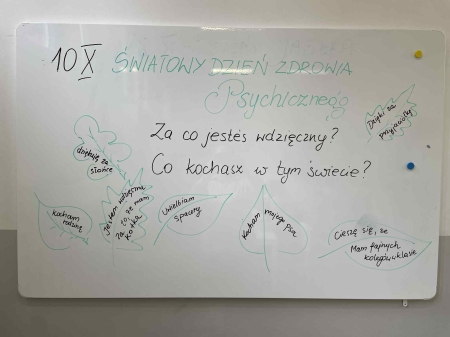 10 X ŚWIATOWY DZIEŃ ZDROWIA
Psychicznego
Za co jesteś wdzięczny?
Co kochasz w tym świecie?
Dzięki za
przyjaciół
dziękuję za
słońce
kocham
rodzinę
Jestem wdzięczna
za to, że mam
kotka
Uwielbiam
spacery
Kocham mojego
psa
Cieszę się, że
Mam fajnych
kolegów w klasie